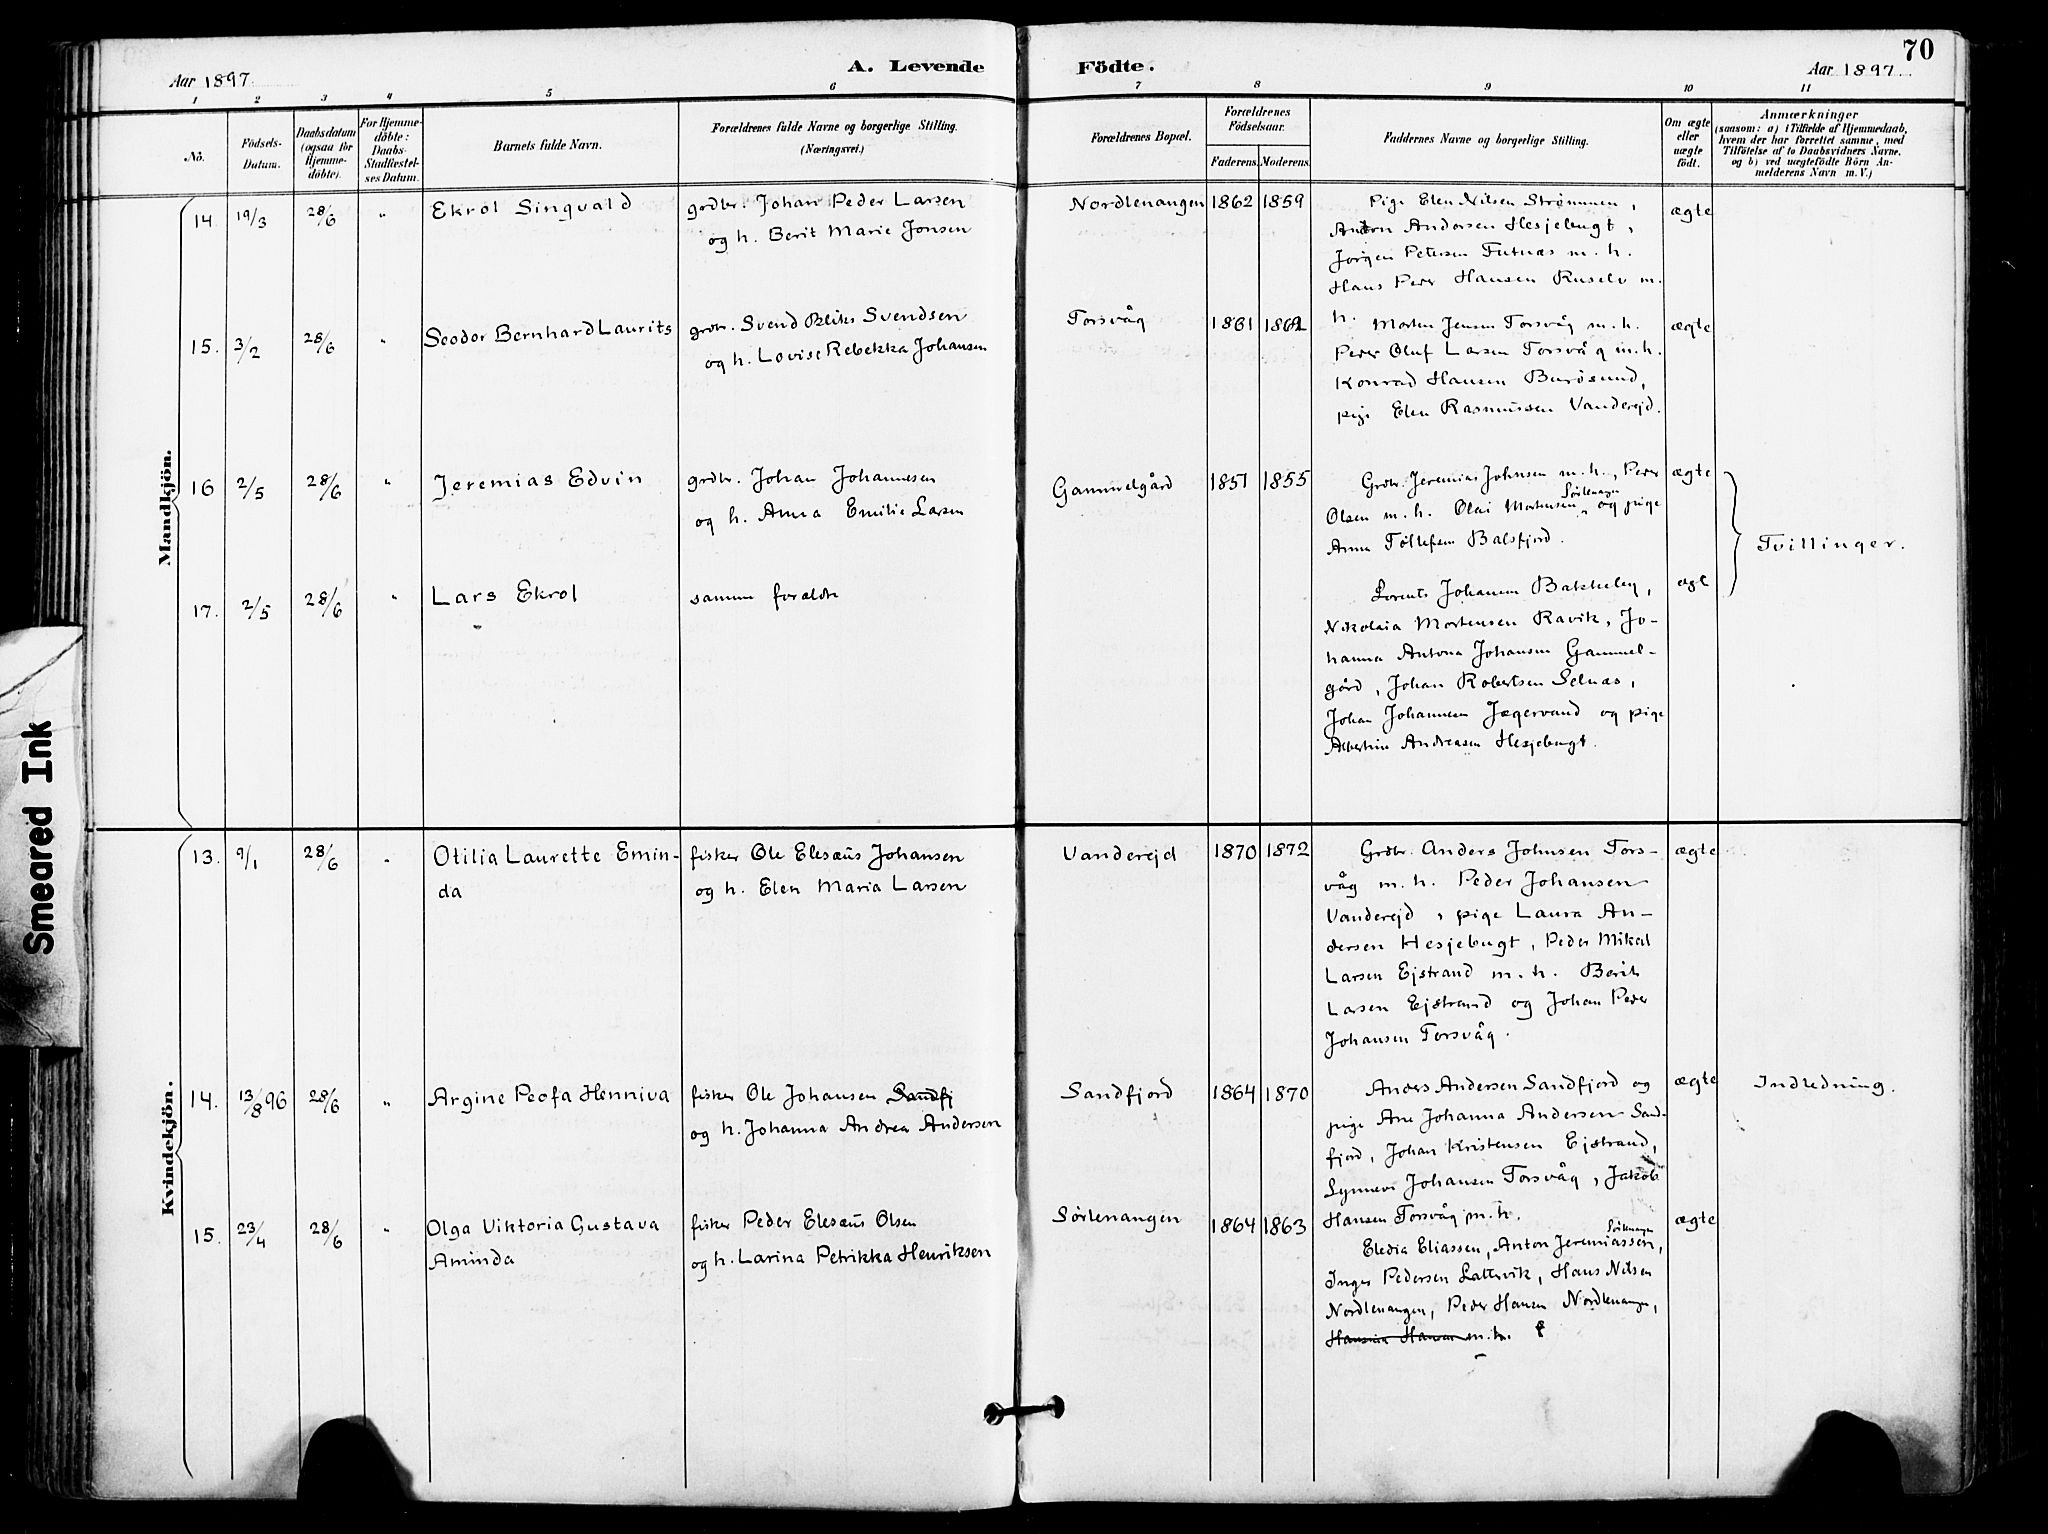 70
Aar 1897
A. Levende Födte.
Aar 1897
1 2 3 4 5 6 7 8 9 10 11
No.
Födsels-
Datum.
Daabsdatum
(ogsaa for
Hjemme-
döbte).
For Hjemme-
döbte:
Daabs-
Stadfæstel-
ses Datum.
Barnets fulde Navn.
Forældrenes fulde Navne og borgerlige Stilling.
(Næringsvei.)
Forældrenes Bopæl.
Forældrenes
Födselsaar.
Faderens. Moderens.
Faddernes Navne og borgerlige Stilling.
Om ægte
eller
uægte
födt.
Anmærkninger
(saasom: a) i Tilfælde af Hjemmedaab,
hvem der har forrettet samme, med
Tilföielse af to Daabsvidners Navne,
og b) ved uægtefödte Börn An-
melderens Navn m. V.)
Mandkjön.
14. 19/3 28/6 " Ekrol Singvald
grdbr. Johan Peder Larsen
og h. Berit Marie Jonsen
Nordlenangen 1862 1859
Pige Elen Nilsen Strømmen,
Anton Andersen Hesjebugt,
Jørgen Petersen Futnæs m. h.
Hans Peder Hansen Ruselv m.
h.
ægte
15. 3/2 28/6 " Seodor Bernhard Laurits
grdbr. Svend Bliks Svendsen
og h. Lovise Rebekka Johansen
Torsvåg 1861 1862
Morten Jensen Torsvåg m. h.
Peder Oluf Larsen Torsvåg m. h.
Konrad Hansen Burøsund,
pige Elen Rasmussen Vanderejd.
ægte
16 2/5 28/6 " Jeremias Edvin
grdbr. Johan Johannesen
og h. Anna Emilie Larsen
Gammelgård 1851 1855
Grdbr. Jeremias Johnsen m. h., Peder
Olsen m. h. Olai Mortensen Sørlenangen og pige
Anna Tollefsen Balsfjord.
ægte
Tvillinger.
17. 2/5 28/6 " Lars Ekrol
samme forældre
Lorents Johansen Bakkeby,
Nikolaia Mortensen Ravik, Jo-
hanna Antona Johansen Gammel-
gård, Johan Robertsen Selnæs,
Johan Johannesen Jægervand og pige
Albertine Andreasen Hesjebugt.
ægt
Kvindekjön.
13. 9/1 28/6 " Otilia Laurette Emin-
da
fisker Ole Elesæus Johansen
og h. Elen Maria Larsen
Vanderejd 1870 1872
Grdbr. Anders Johnsen Tors-
våg m. h. Peder Johansen
Vanderejd, pige Laura An-
dersen Hesjebugt, Peder Mikal
Larsen Ejstrand m. h. Berit
Larsen Ejstrand og Johan Peder
Johansen Torsvåg.
ægte
14. 13/8 96 28/6 " Argine Peofa Henniva
fisker Ole Johansen Sandfj
og h. Johanna Andrea Andersen
Sandfjord 1864 1870
Anders Andersen Sandfjord og
pige Ane Johanna Andersen Sand-
fjord, Johan Kristensen Ejstrand,
Synnøve Johansen Torsvåg, Jakob
Hansen Torsvåg m. h.
ægte
Indledning.
15. 23/4 28/6 " Olga Viktoria Gustava
Aminda
fisker Peder Elesæus Olsen
og h. Larina Petrikka Henriksen
Sørlenangen 1864 1863
Eledia Eliassen, Anton Jeremiassen Sørlenangen,
Inger Pedersen Lattervik, Hans Nilsen
Nordlenangen, Peder Hansen Nordlenangen,
Hansine Hansen m. h.
ægte
Smeared Ink